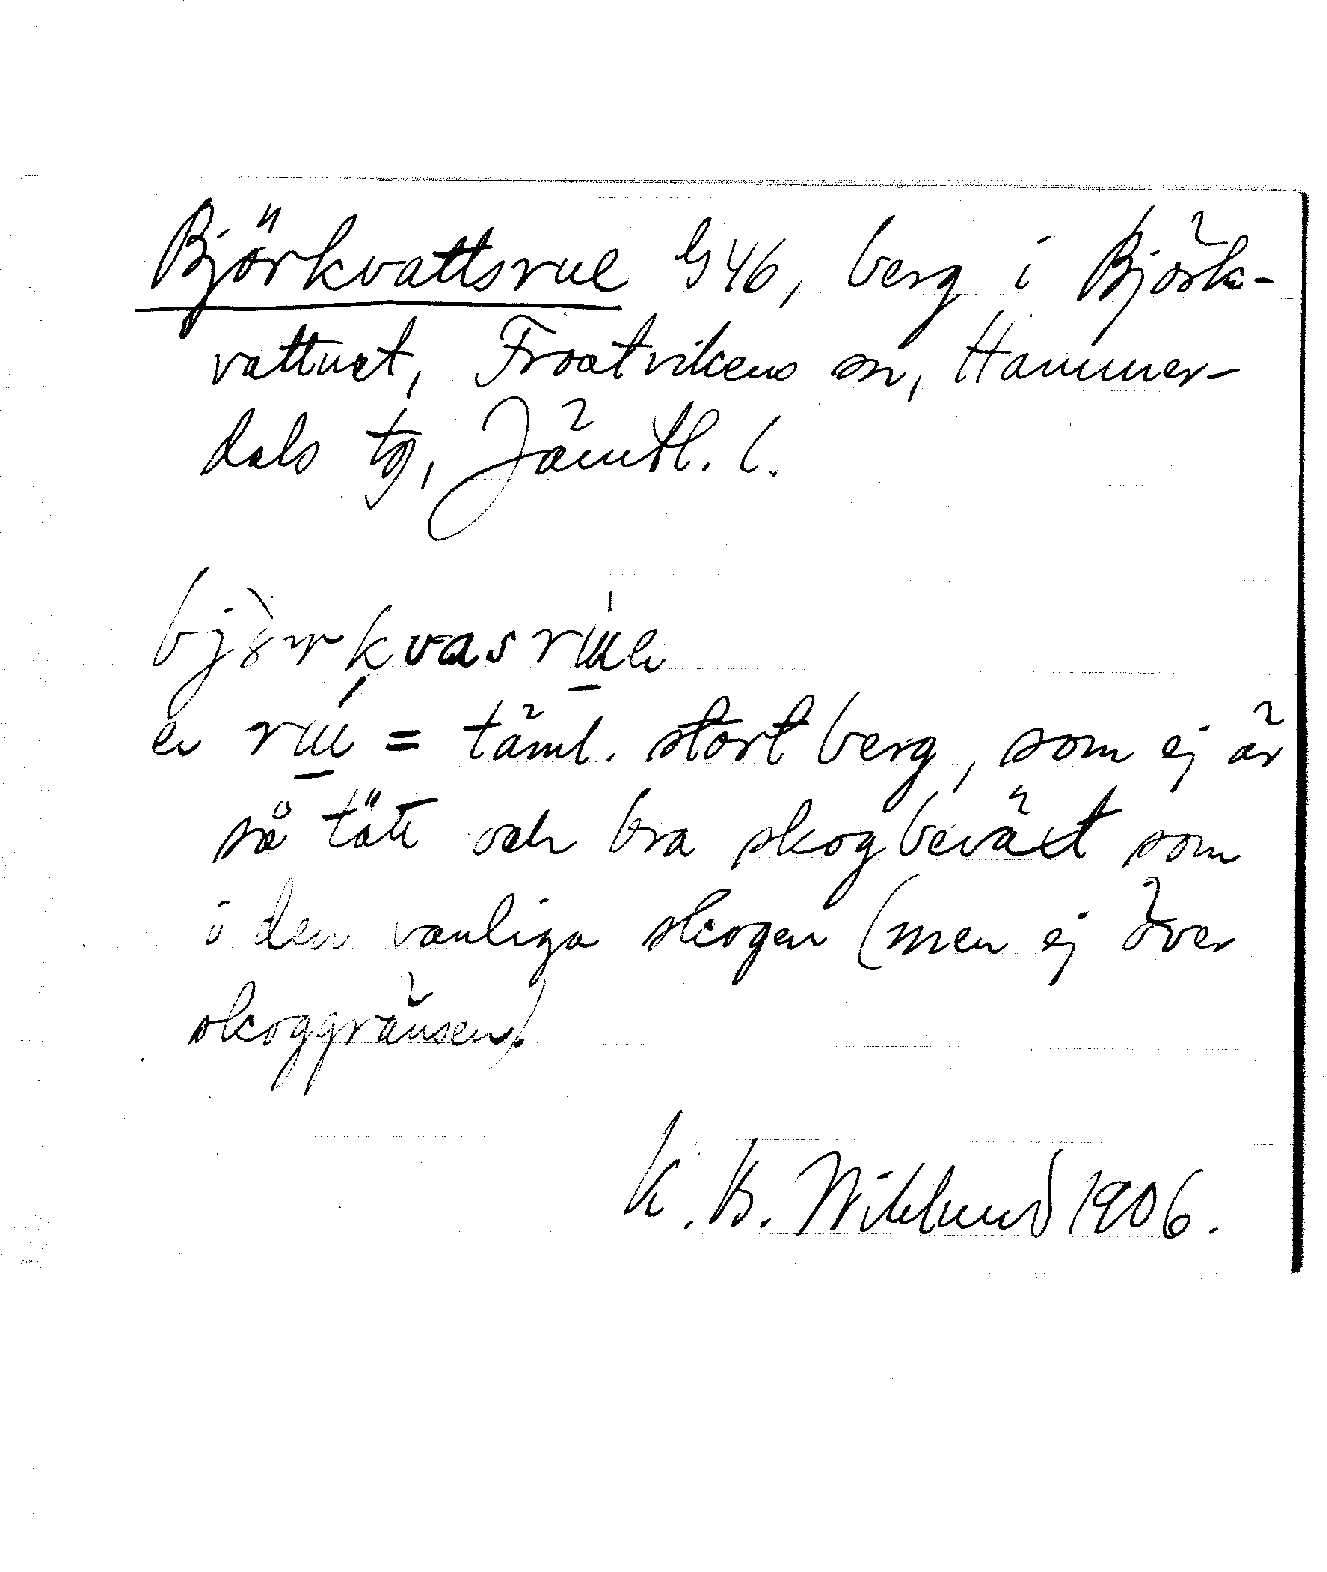 Björkvattsrue G46, berg i Björk-
vattnet, Frostvikens sn, Hammer-
dals tg, Jämtl. l.
björkvasrue
en rue = täml. stort berg, som ej är
så tätt och bra skogbeväxt som
i den vanliga skogen (men ej över
skoggränsen).
K. B. Wiklund 1906.